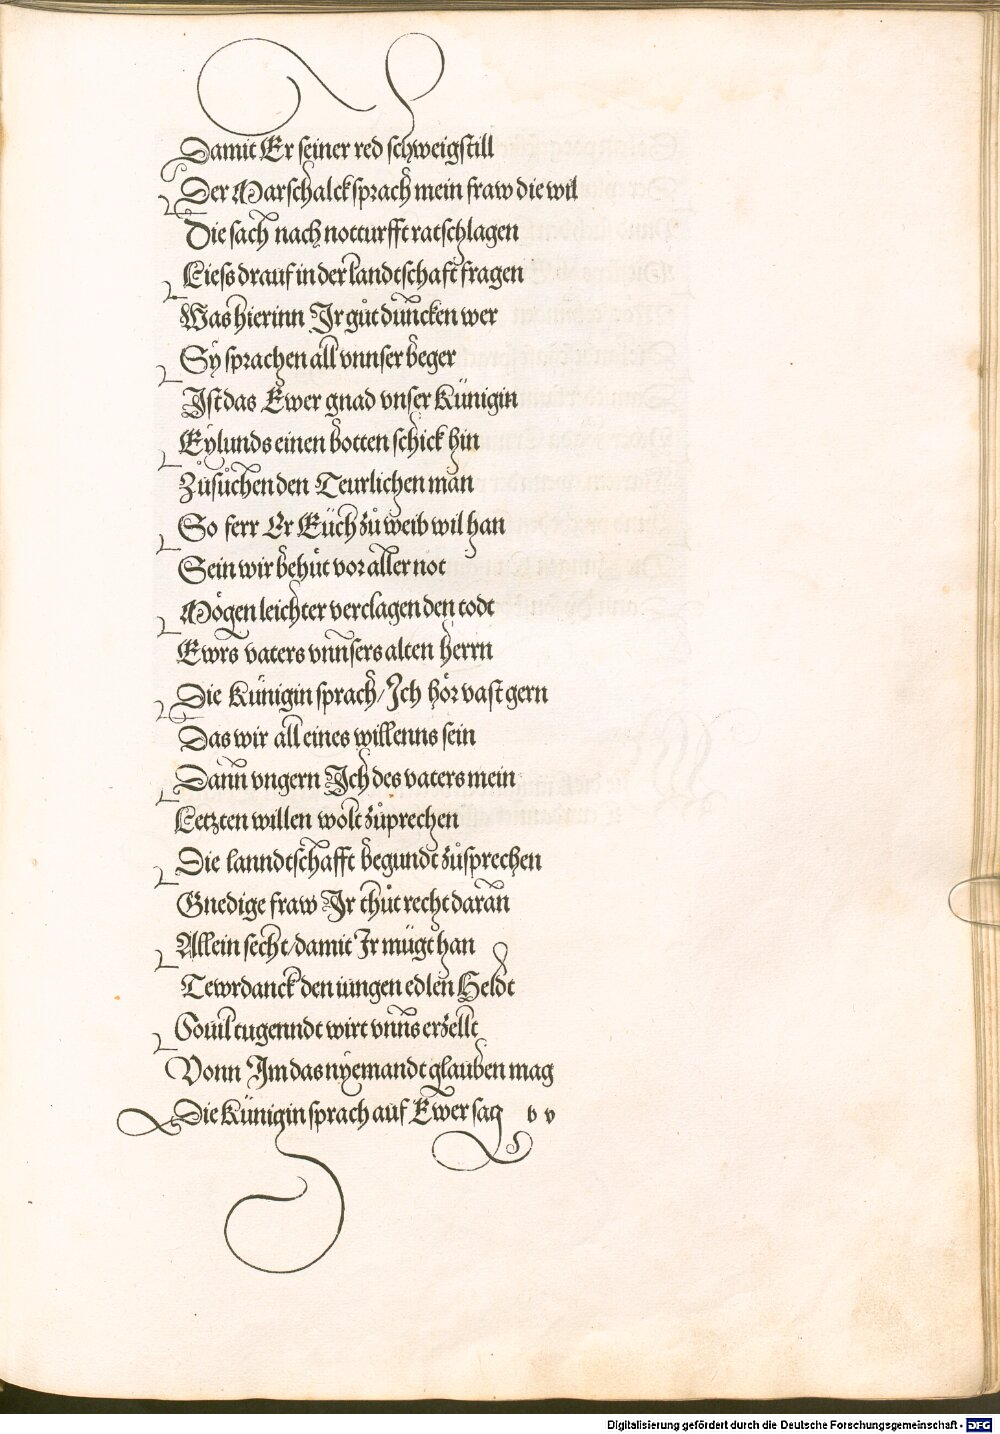 Damit Er seiner red schweigstill
Der Marschalck sprach mein fraw die wil
Die sach nach notturfft ratschlagen
Liess drauf in der landtschaft fragen
Was hierinn Jr gůt dunncken wer
Sy sprachen all vnnser beger
Jst das Ewer gnad vnser Künigin
Eylunds einen botten schick hin
Zůsůchen den Teurlichen man
So ferr Er Eüch zů weib wil han
Sein wir behůt vor aller not
Mögen leichter verclagen den todt
Ewrs vaters vnnsers alten herrn
Die Künigin sprach/ Jch hör vast gern
Das wir all eines willenns sein
Dann vngern Jch des vaters mein
Letzten willen wolt zůprechen
Die lanndtschafft begundt zůsprechen
Gnedige fraw Jr thůt recht daran
Allein secht/ damit Jr mügt han
Tewrdanck den iungen edlen Heldt
Souil tugenndt wirt vnns erzellt
Vonn Jm das nyemandt glauben mag
Die Künigin sprach auf Ewer sag v v
Digitalisierung gefördert durch die Deutsche Forschungsgemeinschaft - DFG